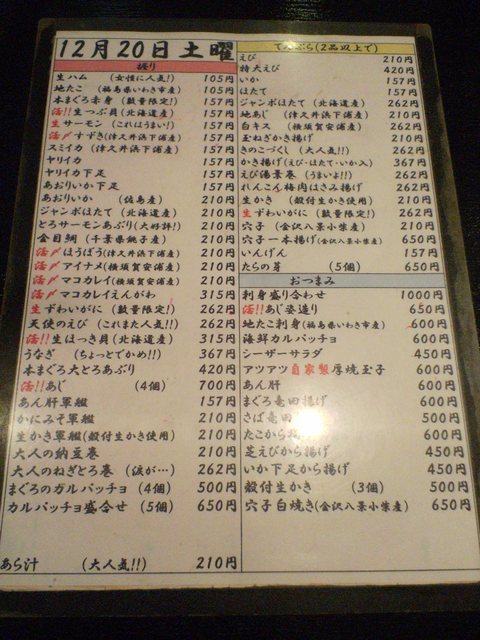 12月20日土曜
握り
生ハム (女性に人気!) 105円
地たこ (福島県いわき市産) 105円
本まぐろ赤身 (数量限定!) 157円
活!!生つぶ貝 (北海道産) 157円
生サーモン (これはうまい!) 157円
活〆すずき(津久井浜下浦産) 157円
スミイカ (津久井浜下浦産) 157円
ヤリイカ 157円
ヤリイカ下足 157円
あおりいか下足 157円
あおりいか (佐島産) 210円
ジャンボほたて (北海道産) 210円
とろサーモンあぶり(大好評!) 210円
金目鯛 (千葉県銚子産) 210円
活〆ほうぼう(津久井浜下浦産) 210円
活〆アイナメ(横須賀安浦産) 210円
活〆マコカレイ(横須賀安浦産) 210円
活〆マコカレイえんがわ 315円
生ずわいがに (数量限定!) 262円
天使のえび (これまた人気!!) 262円
活!!生ほっき貝 (北海道産) 315円
うなぎ (ちょっとでかめ!!) 367円
本まぐろ大とろあぶり 420円
活!!あじ (4個) 700円
あん肝軍艦 157円
かにみそ軍艦 210円
生かき軍艦(殻付生かき使用) 210円
大人の納豆巻 210円
大人のねぎとろ巻 (涙が…) 262円
まぐろのカルパッチョ (4個) 500円
カルパッチョ盛合せ (5個) 650円
あら汁 (大人気!!) 210円
てんぷら(2品以上で)
えび 210円
特大えび 420円
いか 157円
ほたて 157円
ジャンボほたて (北海道産) 262円
地あじ (津久井浜下浦産) 210円
白キス (横須賀安浦産) 262円
玉ねぎかき揚げ 210円
きのこづくし (大人気!!) 262円
かき揚げ(えび・ほたて・いか入) 367円
えび湯葉巻 (うまいよ!!) 262円
れんこん梅肉はさみ揚げ 262円
生かき (殻付生かき使用) 210円
生ずわいがに (数量限定!) 262円
穴子 (金沢八景小柴産) 210円
穴子一本揚げ(金沢八景小柴産) 650円
いんげん 157円
たらの芽 (5個) 650円
おつまみ
刺身盛り合わせ 1000円
活!!あじ姿造り 650円
地たこ刺身(福島県いわき市産) 600円
海鮮カルパッチョ 600円
シーザーサラダ 450円
アツアツ自家製厚焼玉子 600円
あん肝 600円
まぐろ竜田揚げ 600円
さば竜田 500円
たこから 600円
芝えびから揚げ 450円
いか下足から揚げ 450円
殻付生かき (3個) 500円
穴子白焼き(金沢八景小柴産) 650円